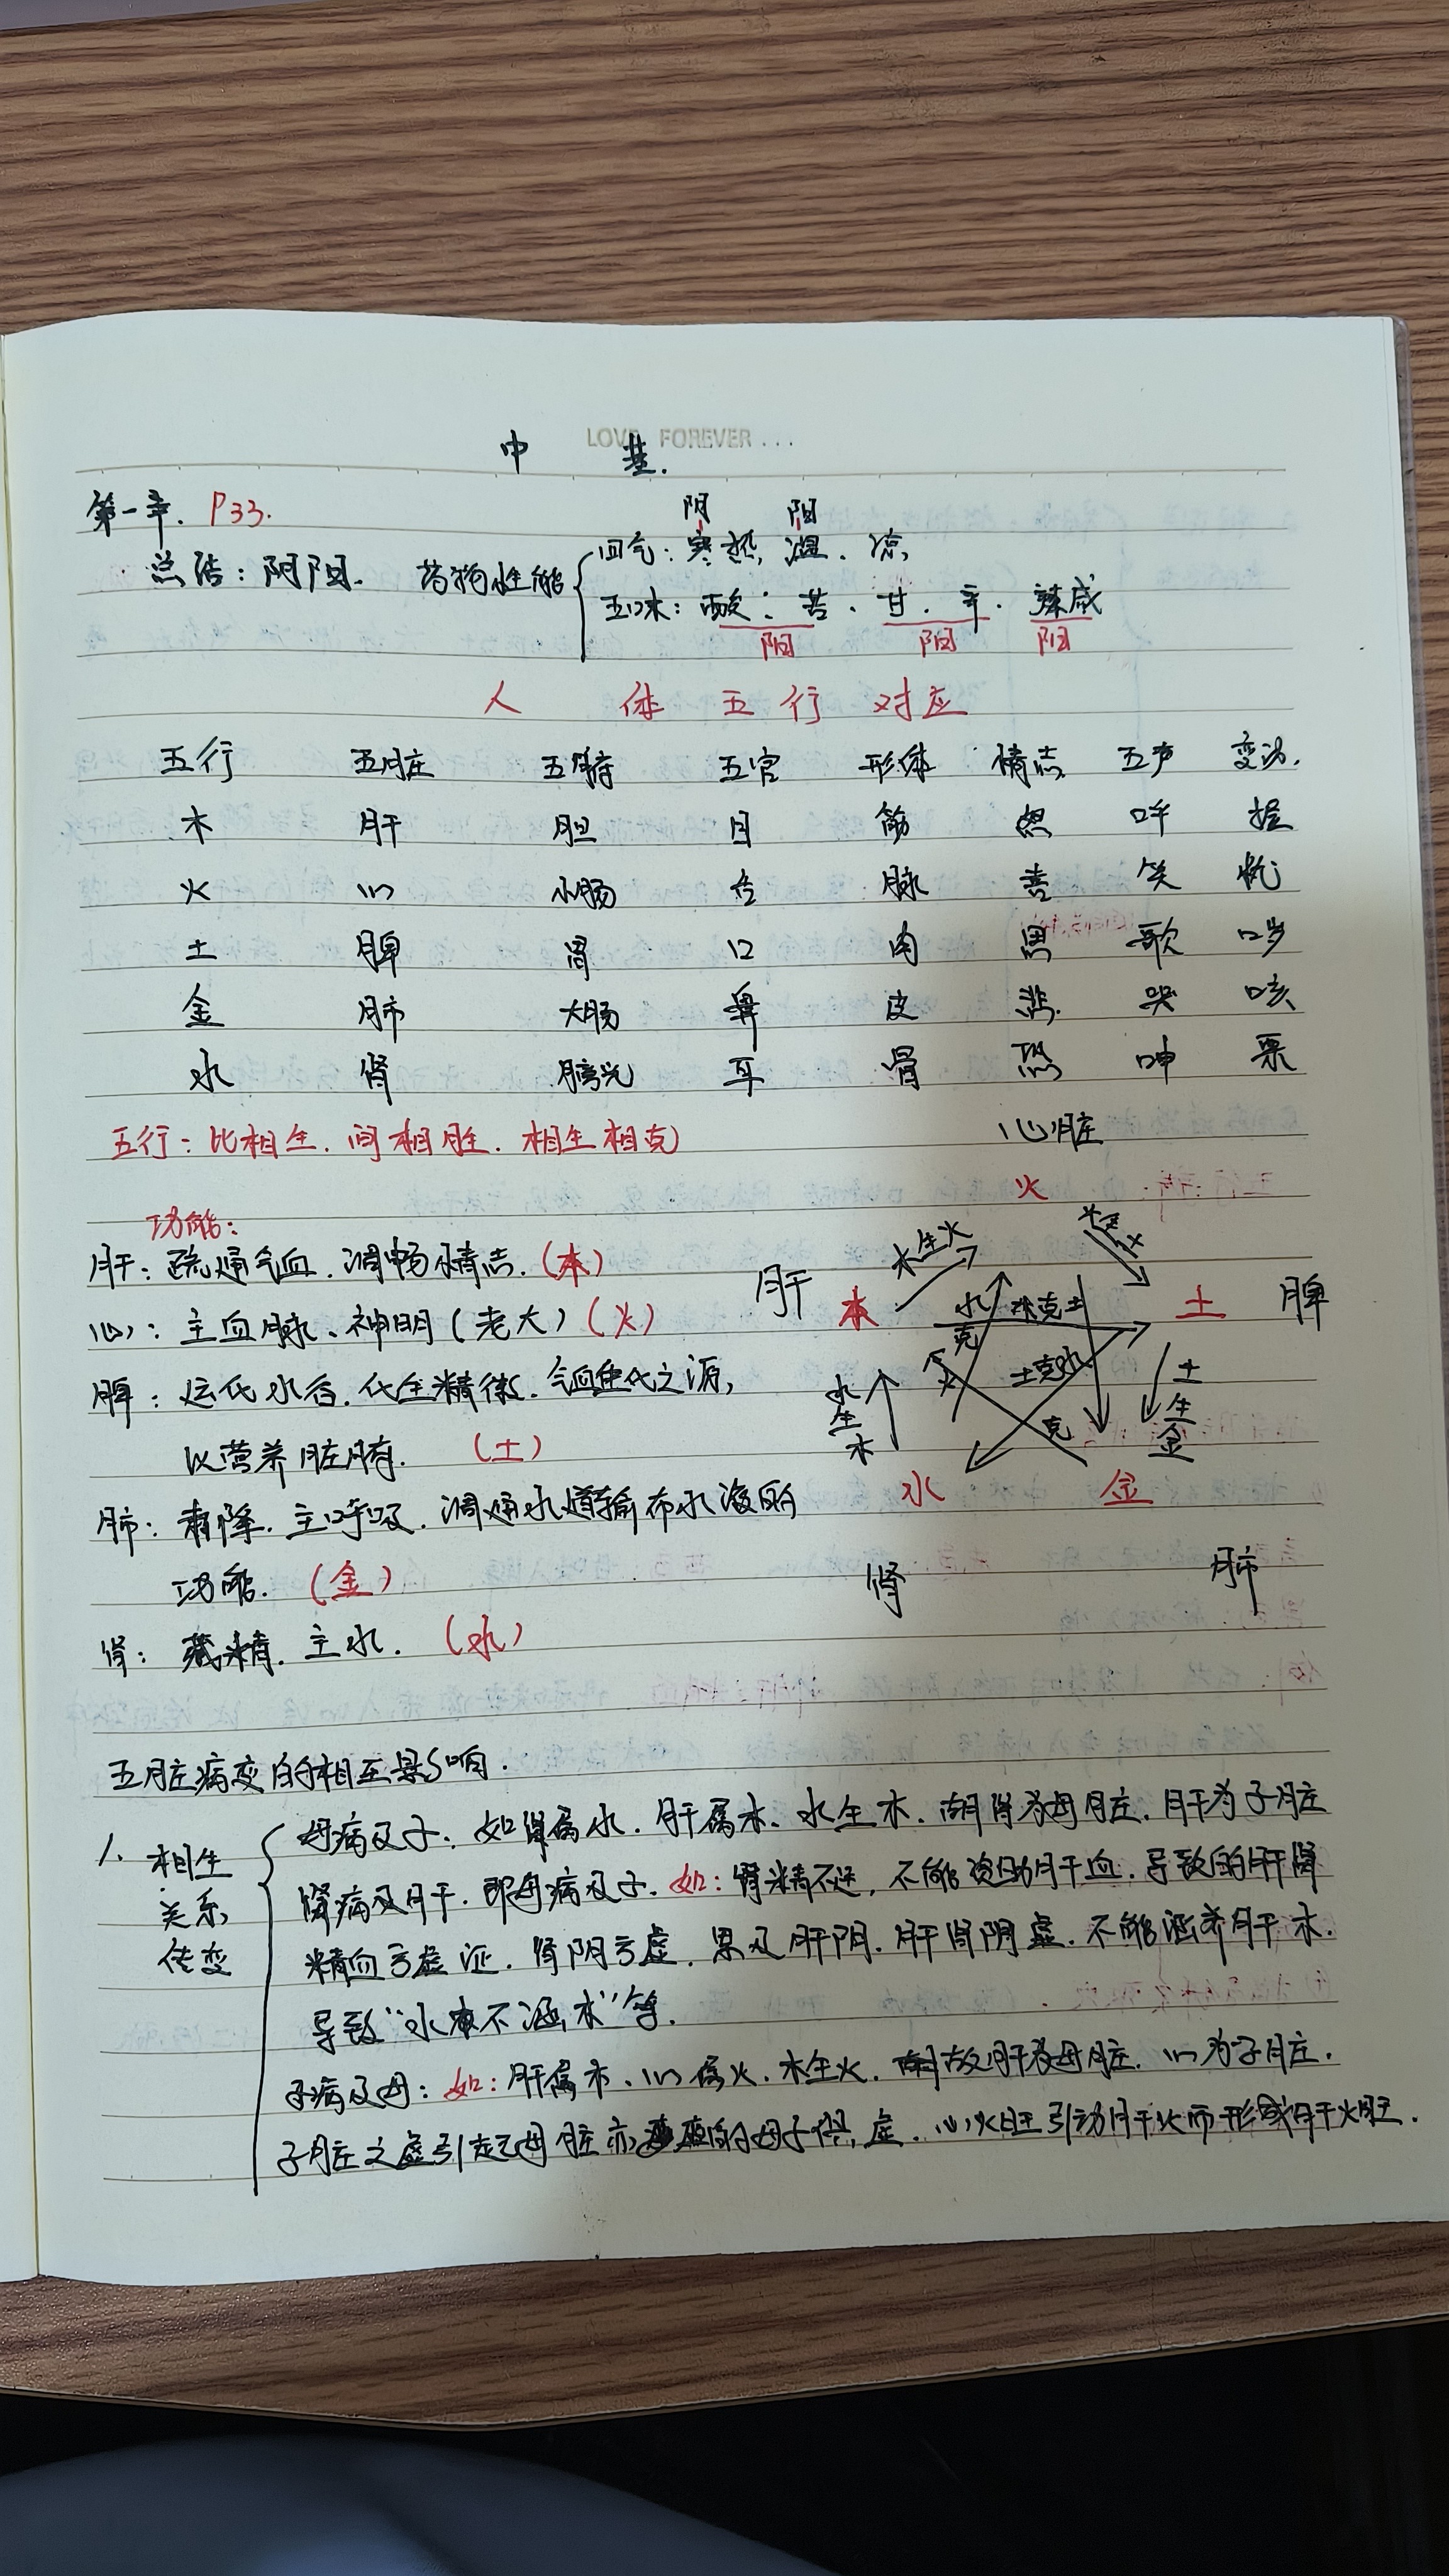 LOVE FOREVER ...
中 基.
第一章. P33.
阴 阳
总结: 阴阳. 药物性能
四气: 寒热, 温. 凉,
五味: 酸: 苦. 甘. 辛. 辣咸
阳 阳 阳
人 体 五 行 对应
五行 五脏 五腑 五官 形体 情志 五声 变动.
木 肝 胆 目 筋 怒 呼 握
火 心 小肠 舌 脉 喜 笑 忧
土 脾 胃 口 肉 思 歌 哕
金 肺 大肠 鼻 皮 悲. 哭 咳
水 肾 膀光 耳 骨 恐 呻 栗
五行: 比相生. 间相胜. 相生相克
心脏
火
功能:
肝: 疏通气血. 调畅情志. (木)
心: 主血脉、神明 (老大) (火)
脾: 运化水谷. 化生精微. 气血生化之源,
以营养脏腑. (土)
肺: 肃降. 主呼吸. 调通水道输布水液的
功能. (金)
肾: 藏精. 主水. (水)
肝 木 木生火 土 脾
水 克 木克土
土克水
火 克
水生木
土生金
水 金
肾 肺
五脏病变的相互影响.
1. 相生关系传变
母病及子: 如肾属水. 肝属木. 水生木. 肾为母脏. 肝为子脏
肾病及肝. 即母病及子. 如: 肾精不足, 不能资助肝血. 导致的肝肾
精血亏虚证. 肾阴亏虚. 累及肝阴. 肝肾阴虚. 不能涵养肝木.
导致“水不涵木”等.
子病及母: 如: 肝属木、心属火. 木生火. 故肝为母脏. 心为子脏.
子脏之虚引起母脏亦虚的母子俱虚. 心火旺引动肝火而形成肝火旺.